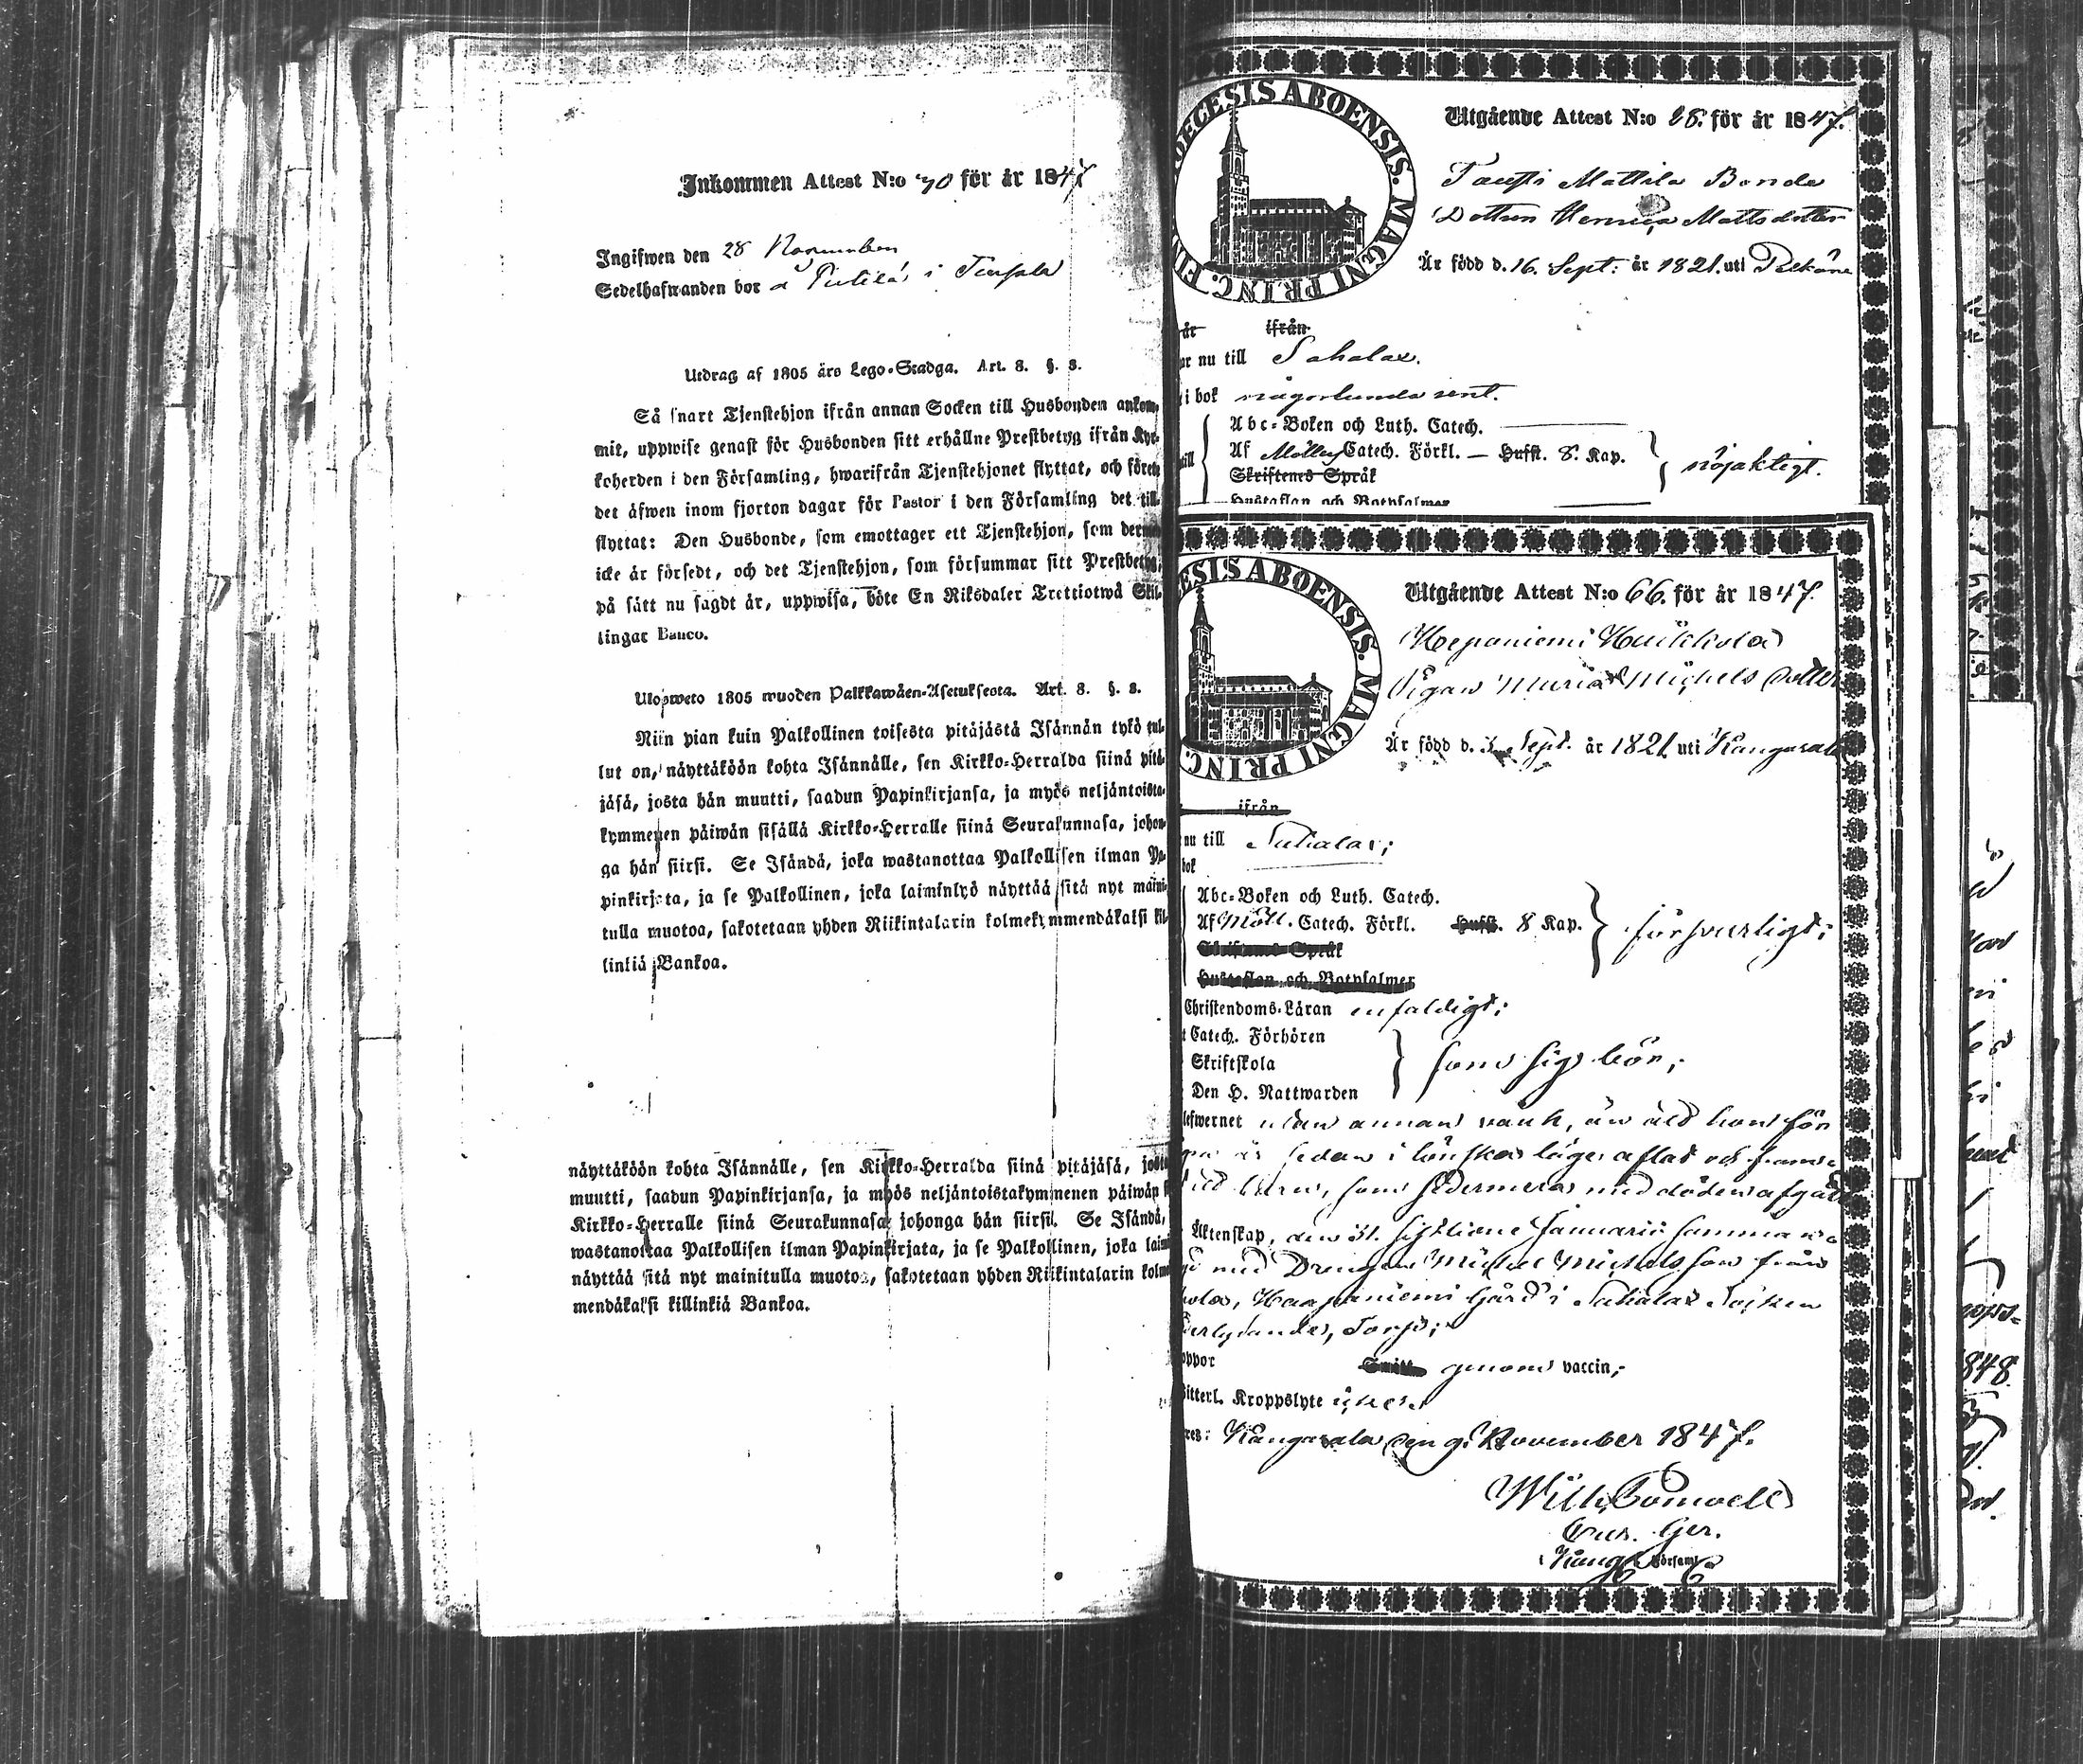 Inkommen Attest N:o 70 för år 1847
Ingifwen den 28 November
Sedelhafwanden bor å i
Utdrag af 1805 års Lego-Stadga. Art. 8. §. 8.
Så snart Tjenstehjon ifrån annan Socken till Husbonden ankom-
mit, uppwise genast för Husbonden sitt erhållne Prestbetyg ifrån Kyr-
koherden i den Församling, hwarifrån Tjenstehjonet flyttat, och förete
det äfwen inom fjorton dagar för Pastor i den Församling det till-
flyttat: Den Husbonde, som emottager ett Tjenstehjon, som dermed
icke är försedt, och det Tjenstehjon, som försummar sitt Prestbetyg,
på sätt nu sagdt är, uppwisa, böte En Riksdaler Trettiotwå Skil-
lingar Banco.
Ulosweto 1805 wuoden Palkkawäen-Asetuksesta. Art. 8. §. 8.
Niin pian kuin Palkollinen toisesta pitäjästä Isännän tykö tul-
lut on, näyttäköön kohta Isännälle, sen Kirkko-Herralda siinä pitä-
jäsä, josta hän muutti, saadun Papinkirjansa, ja myös neljäntoista-
kymmenen päiwän sisällä Kirkko-Herralle siinä Seurakunnasa, johon-
ga hän siirsi. Se Isändä, joka wastanottaa Palkollisen ilman Pa-
pinkirjata, ja se Palkollinen, joka laiminlyö näyttää sitä nyt maini-
tulla muotoa, sakotetaan yhden Riikintalarin kolmekymmendäkaksi kil-
linkiä Bankoa.
näyttäköön kohta Isännälle, sen Kirkko-Herralda siinä pitäjäsä, josta
muutti, saadun Papinkirjansa, ja myös neljäntoistakymmenen päiwän s
Kirkko-Herralle siinä Seurakunnasa johonga hän siirsi. Se Isändä,
wastanottaa Palkollisen ilman Papinkirjata, ja se Palkollinen, joka laimi
näyttää sitä nyt mainitulla muotoa, sakotetaan yhden Riikintalarin kolme
mendäkaksi killinkiä Bankoa.
DECESIS ABOENSIS. MAGNI PRINC. FIN
Utgående Attest N:o 28. för år 1847.
Mattila Bonde
Dottren Mattsdotter
Är född d. 16. Sept: år 1821. uti Pelkäne
år ifrån
nu till Sahalax.
i bok någorlunda rent.
Abc-Boken och Luth. Catech.
Af Möllers Catech. Förkl. — Husst. 8. Kap.
nöjaktigt.
Skriftenes Språk
Hustaflan och Botpsalmer
ESIS ABOENSIS. MAGNI PRINC.
Utgående Attest N:o 66. för år 1847.
Hepaniemi Huikkola
Pigan Maria Michels dotter
Är född d. 3. Sept. år 1821 uti Kangasala
ifrån
nu till Sahalax;
bok
Abc-Boken och Luth. Catech.
Af Möll. Catech. Förkl. Husst. 8 Kap.
försvarligt;
Skriftenes Språk
Hustaflan och Botpsalmer
Christendoms-Läran enfaldigt;
Catech. Förhören
Skriftskola
som sig bör;
Den H. Nattwarden
lefwernet utan annan än att hon för
är sedan i lönska läge aflat och fram-
barn, som sedermera med döden afgått
Äktenskap, den 31. sistlidne Januarii samma
med Drengen Michel Michelsson från
Haapaniemi Gård i Sahalax Socken
oppor genom vaccin;
itterl. Kroppslyte
Kangasala den 9. November 1847.
Cur. Ger.
Kang. Församl.
848